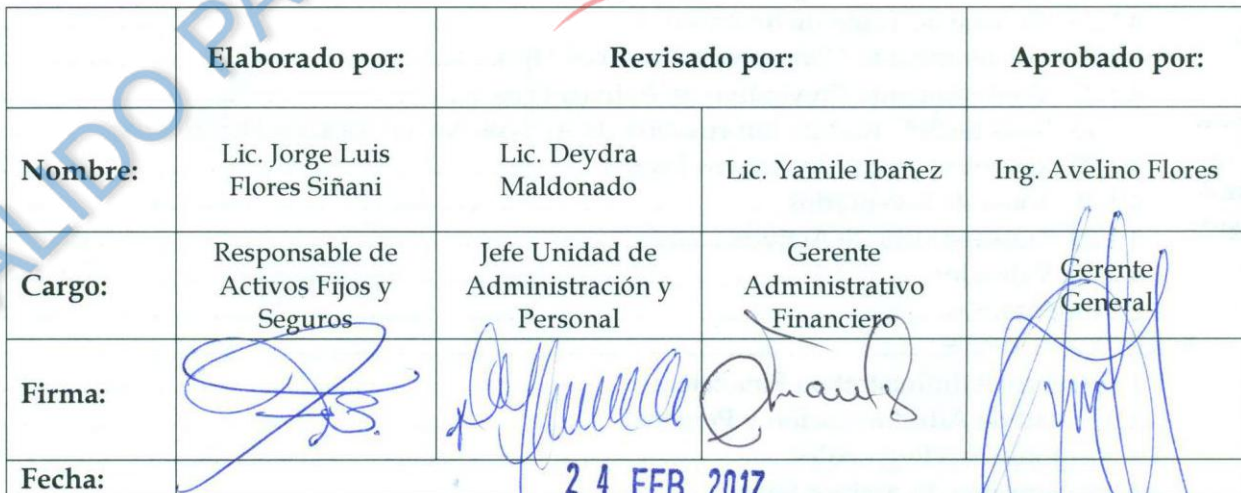 Elaborado por: Revisado por: Aprobado por:
Nombre: Lic. Jorge Luis Flores Siñani Lic. Deydra Maldonado Lic. Yamile Ibañez Ing. Avelino Flores
Cargo: Responsable de Activos Fijos y Seguros Jefe Unidad de Administración y Personal Gerente Administrativo Financiero Gerente General
Firma:
Fecha: 24 FEB 2017